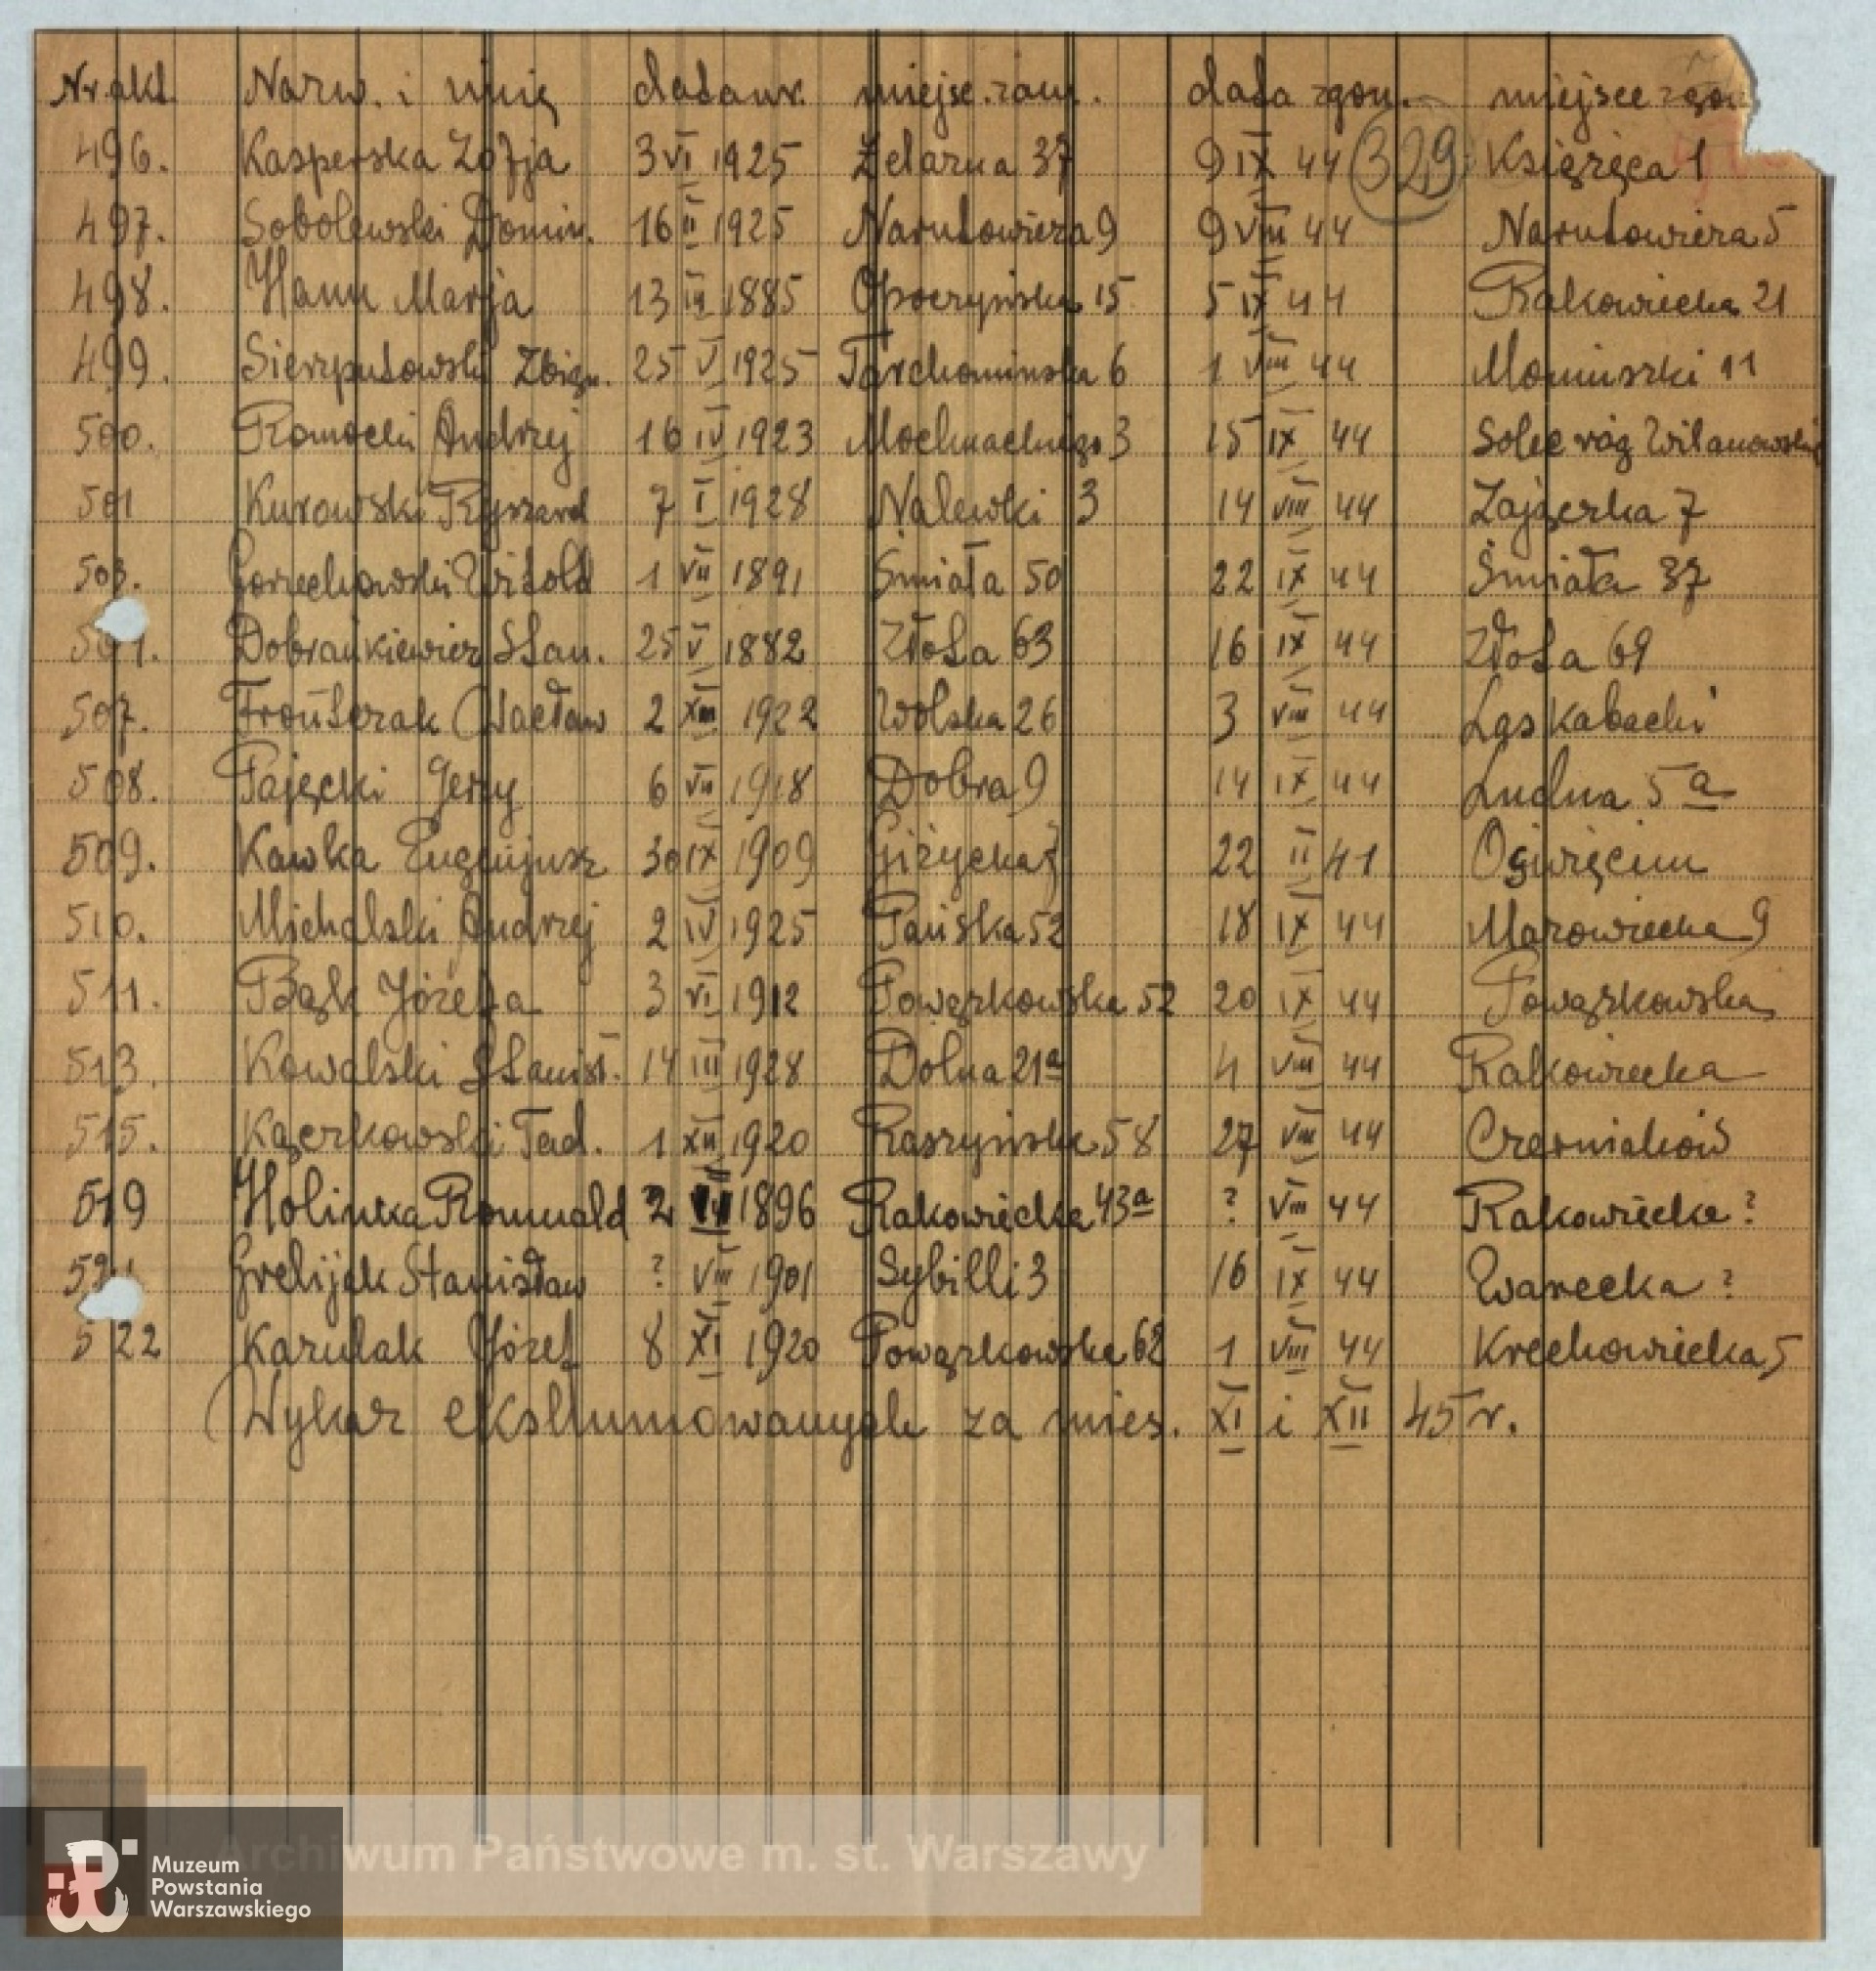 Nr. akt. Nazw. i imię data ur. miejsc. zam. data zgon. miejsce zgon
496. Kasperska Zofja 3 VI 1925 Żelazna 37 9 IX 44 329 Książęca 1
497. Sobolewski Domin. 16 II 1925 Narutowicza 9 9 VIII 44 Narutowicza 5
498. Hann Marja 13 III 1885 Opoczyńska 15 5 IX 44 Rakowiecka 21
499. Sierzputowski Zbign. 25 V 1925 Tarchomińska 6 1 VIII 44 Moniuszki 11
500. Romocki Andrzej 16 IV 1923 Mochnackiego 3 15 IX 44 Solec róg Wilanowskiej
501 Kurowski Ryszard 7 I 1928 Nalewki 3 14 VIII 44 Zajączka 7
503. Gorzechowski Witold 1 VII 1891 Śmiała 50 22 IX 44 Śmiała 37
Stan. 25 V 1882 Złota 63 16 IX 44 Złota 69
507. Wacław 2 XII 1922 Wolska 26 3 VIII 44 Las Kabacki
508. Pajęcki Jerzy 6 VII 1918 Dobra 9 14 IX 44 Ludna 5a
509. Kawka Eugenjusz 30 IX 1909 Giżycka 7 22 II 41 Oświęcim
510. Michalski Andrzej 2 IV 1925 Pańska 52 18 IX 44 Mazowiecka 9
511. Bąk Józefa 3 VI 1912 Powązkowska 52 20 IX 44 Powązkowska
513. Kowalski Stanisł. 14 III 1928 Dolna 21a 4 VIII 44 Rakowiecka
515. Kączkowski Tad. 1 XII 1920 Raszyńska 58 27 VIII 44 Czerniaków
519 Holinka Romuald 2 1896 Rakowiecka 43a ? VIII 44 Rakowiecka ?
Grelijak Stanisław ? VIII 1901 Sybilli 3 16 IX 44 Warecka ?
522 Kazulak Józef 8 XI 1920 Powązkowska 62 1 VIII 44 Krechowiecka 5
(Wykaz ekshumowanych za mies. XI i XII 45 r.
Archiwum Państwowe m. st. Warszawy
Muzeum
Powstania
Warszawskiego